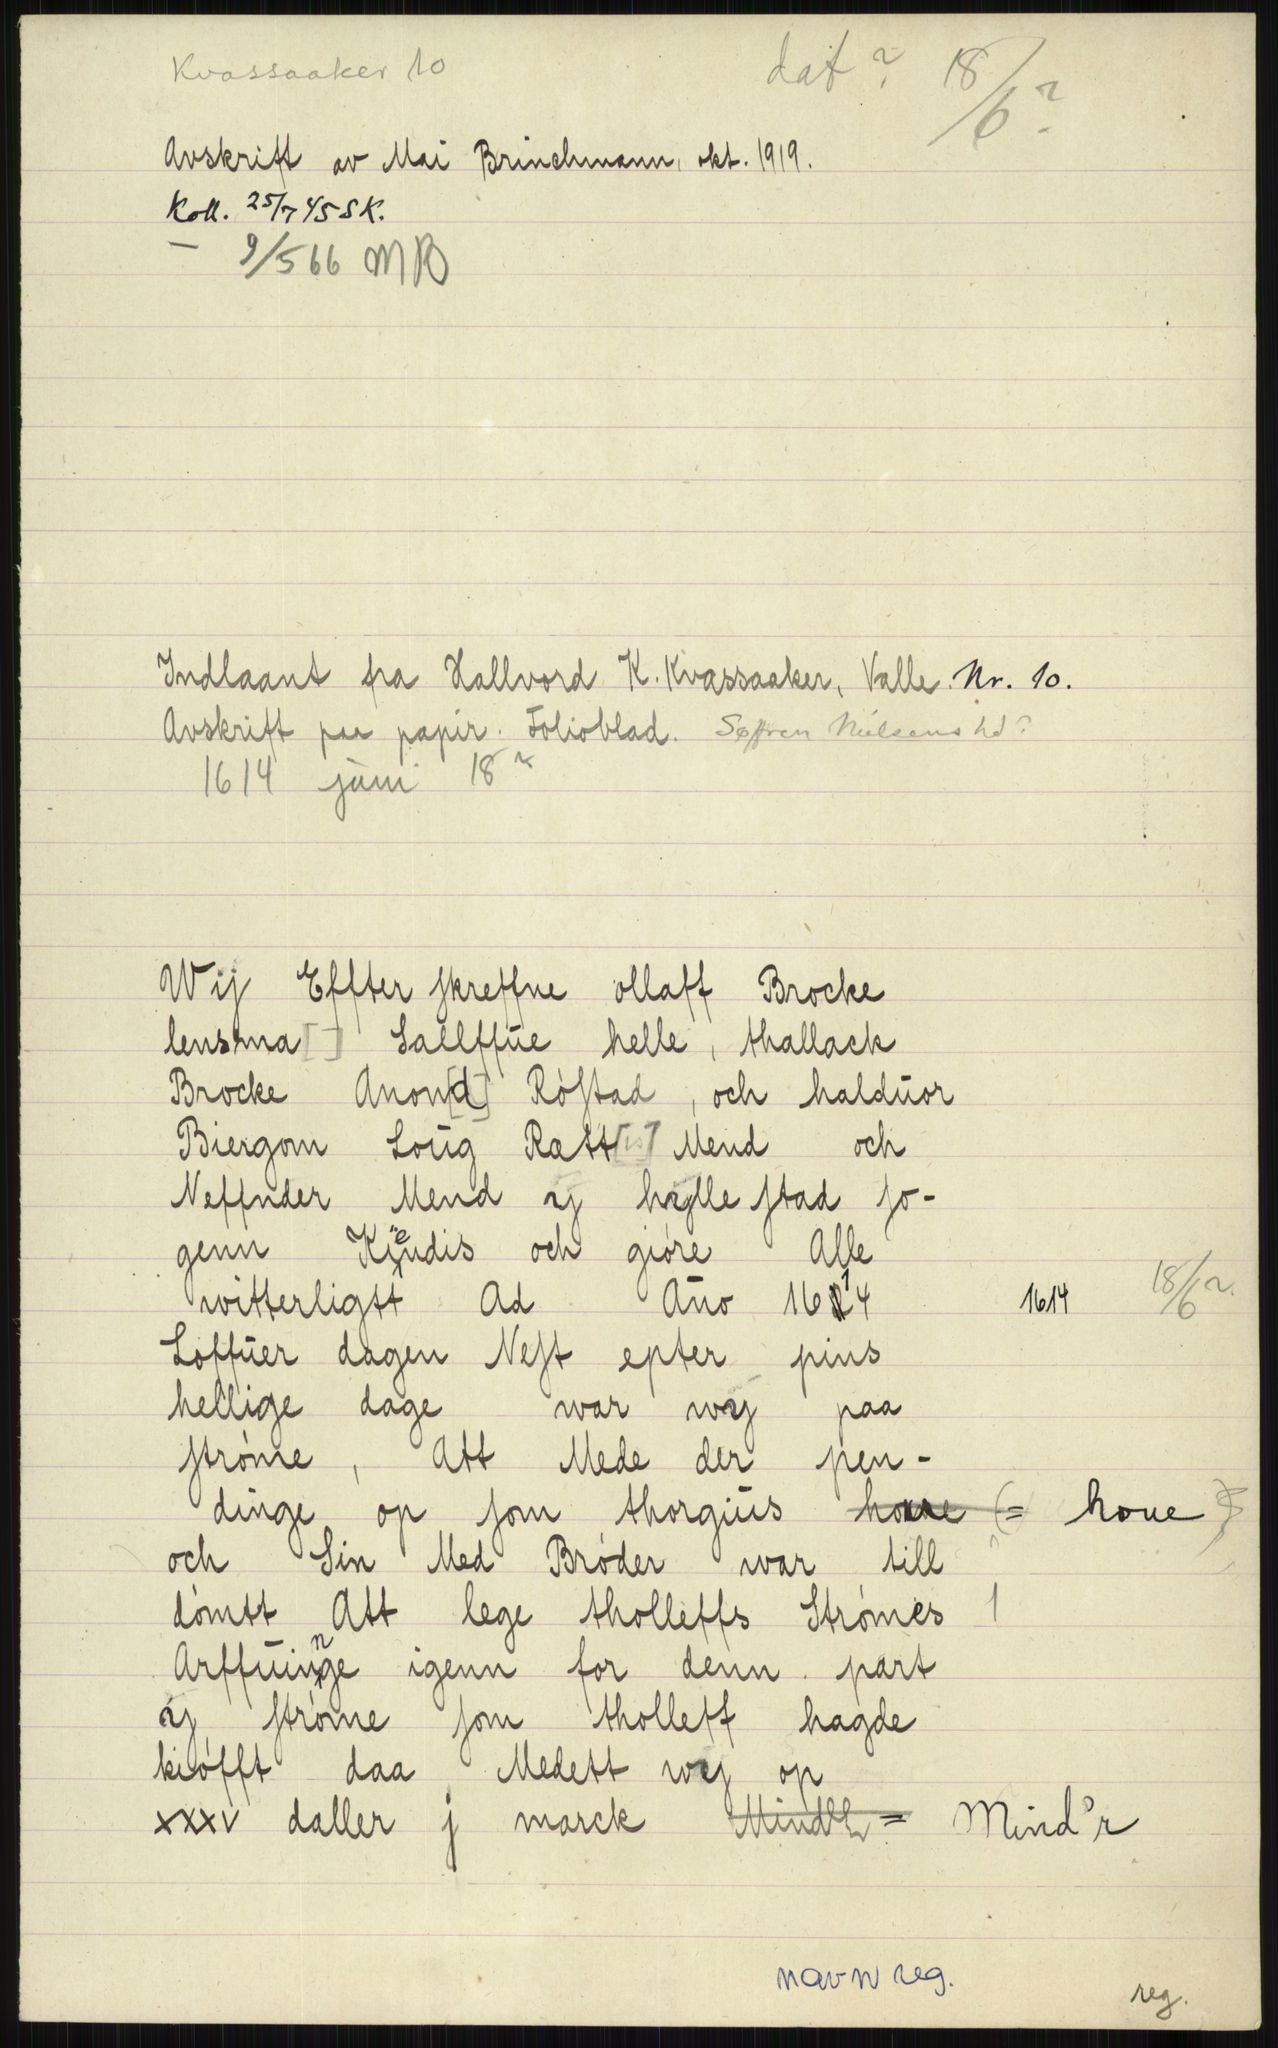 Kvassaaker 10
dat ? 18/6 ?
Avskrift av Mai Brinchmann, okt. 1919.
Koll. 25/7 45 SK.
— 9/5 66 MB
Indlaant fra Hallvord K. Kvassaaker, Valle. Nr. 10.
Avskrift paa papir. Folioblad. Søffren Nielsens hd?
1614 juni 18 ?
Wij Effter skreffne ollaff Brocke
lensma[ ] Sallffūe helle, thallack
Brocke Anon[d] Róstad, och haldūor
Biergom Loūg Rætt[is] Mend och
Neffnder Mend ij hylle stad so-
genn Kiendis och gióre Alle
witterligtt Ad Año 1614 1614 18/6 ?
Loffūer dagen Nest epter pins
hellige dage war wij paa
stróme, Att Mede der pen-
dinge op som thorgiūs houe (= houe)
och Sin Med Bróder war till
dómtt Att lege tholleffs Strómes
Arffūinge igenn for denn part
ij stróme som tholleff hagde
kiófft daa Medett wij op
xxxv daller j marck Mind = Mind'r
navn reg.
reg.